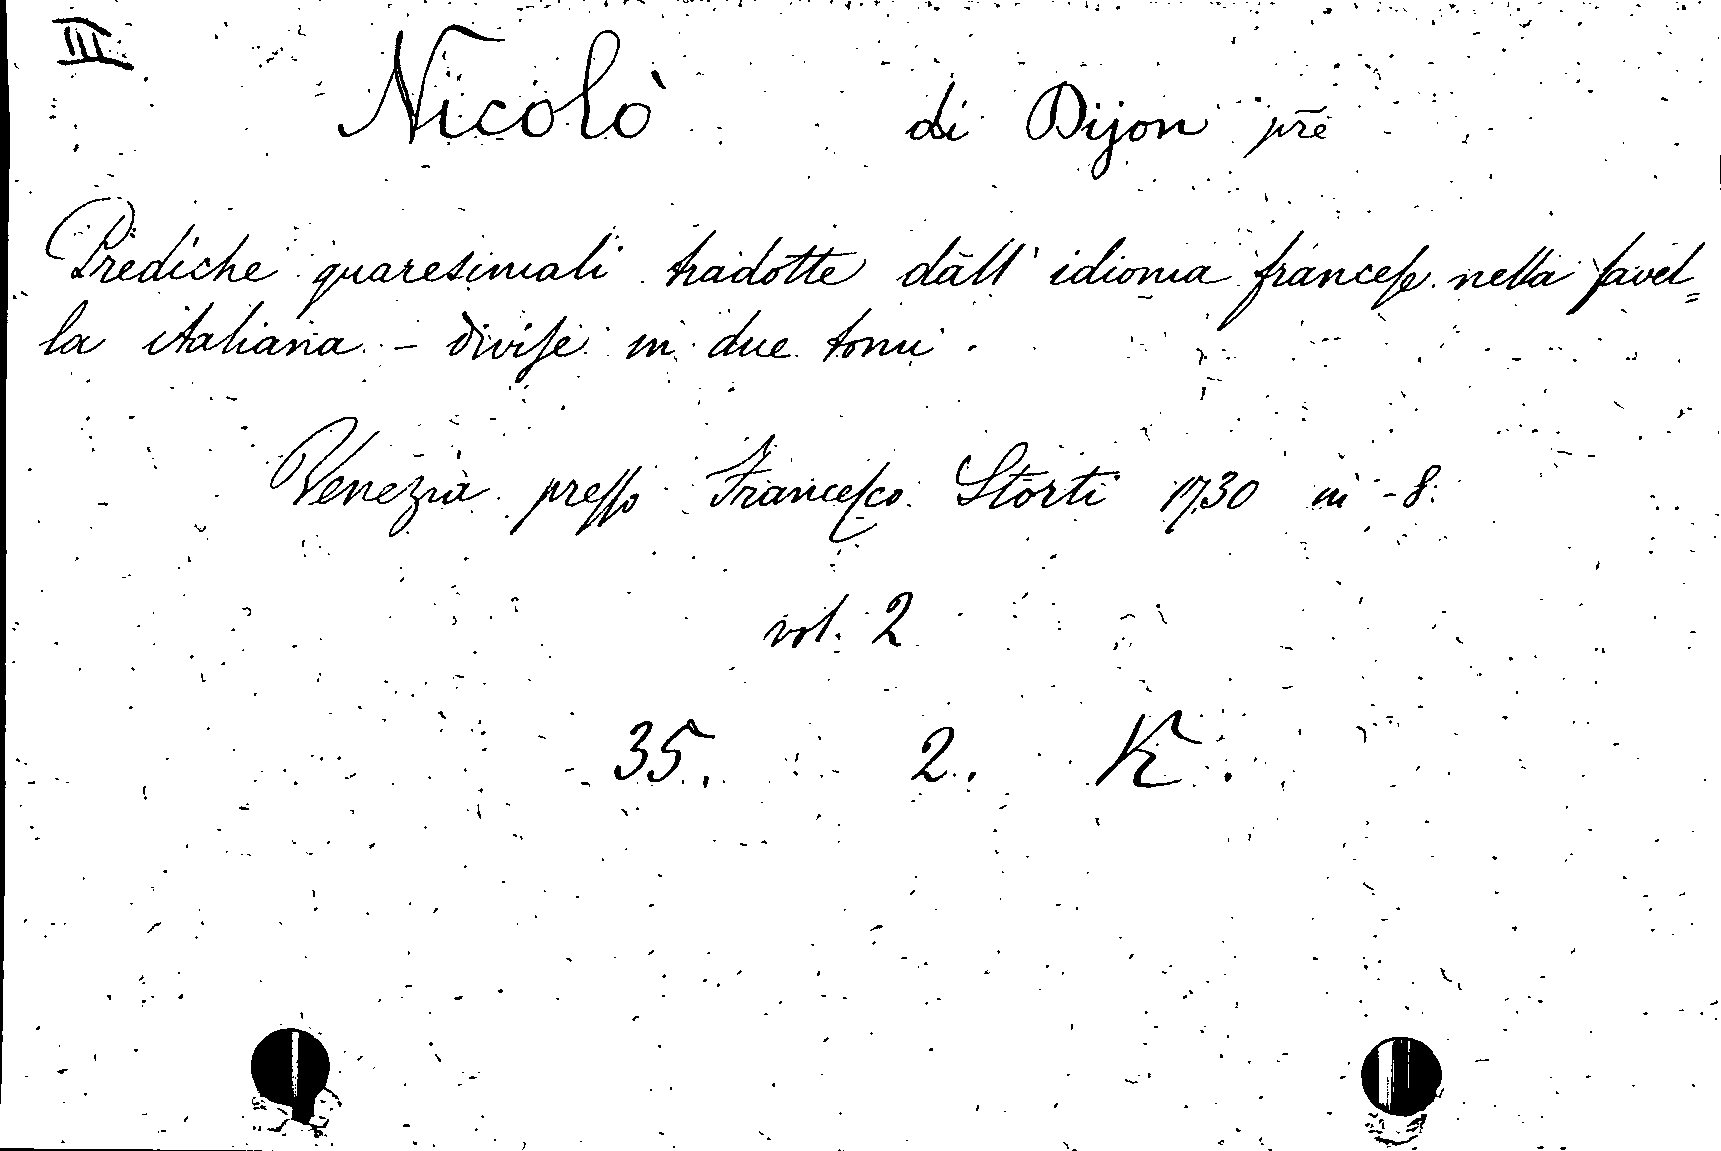 III
Nicolò di Dijon prē
Prediche quaresimali tradotte dall' idioma francese nella favel=
la italiana - divise in due tomi.
Venezia presso Francesco Storti 1730 in - 8.
vol. 2
35. 2. K.